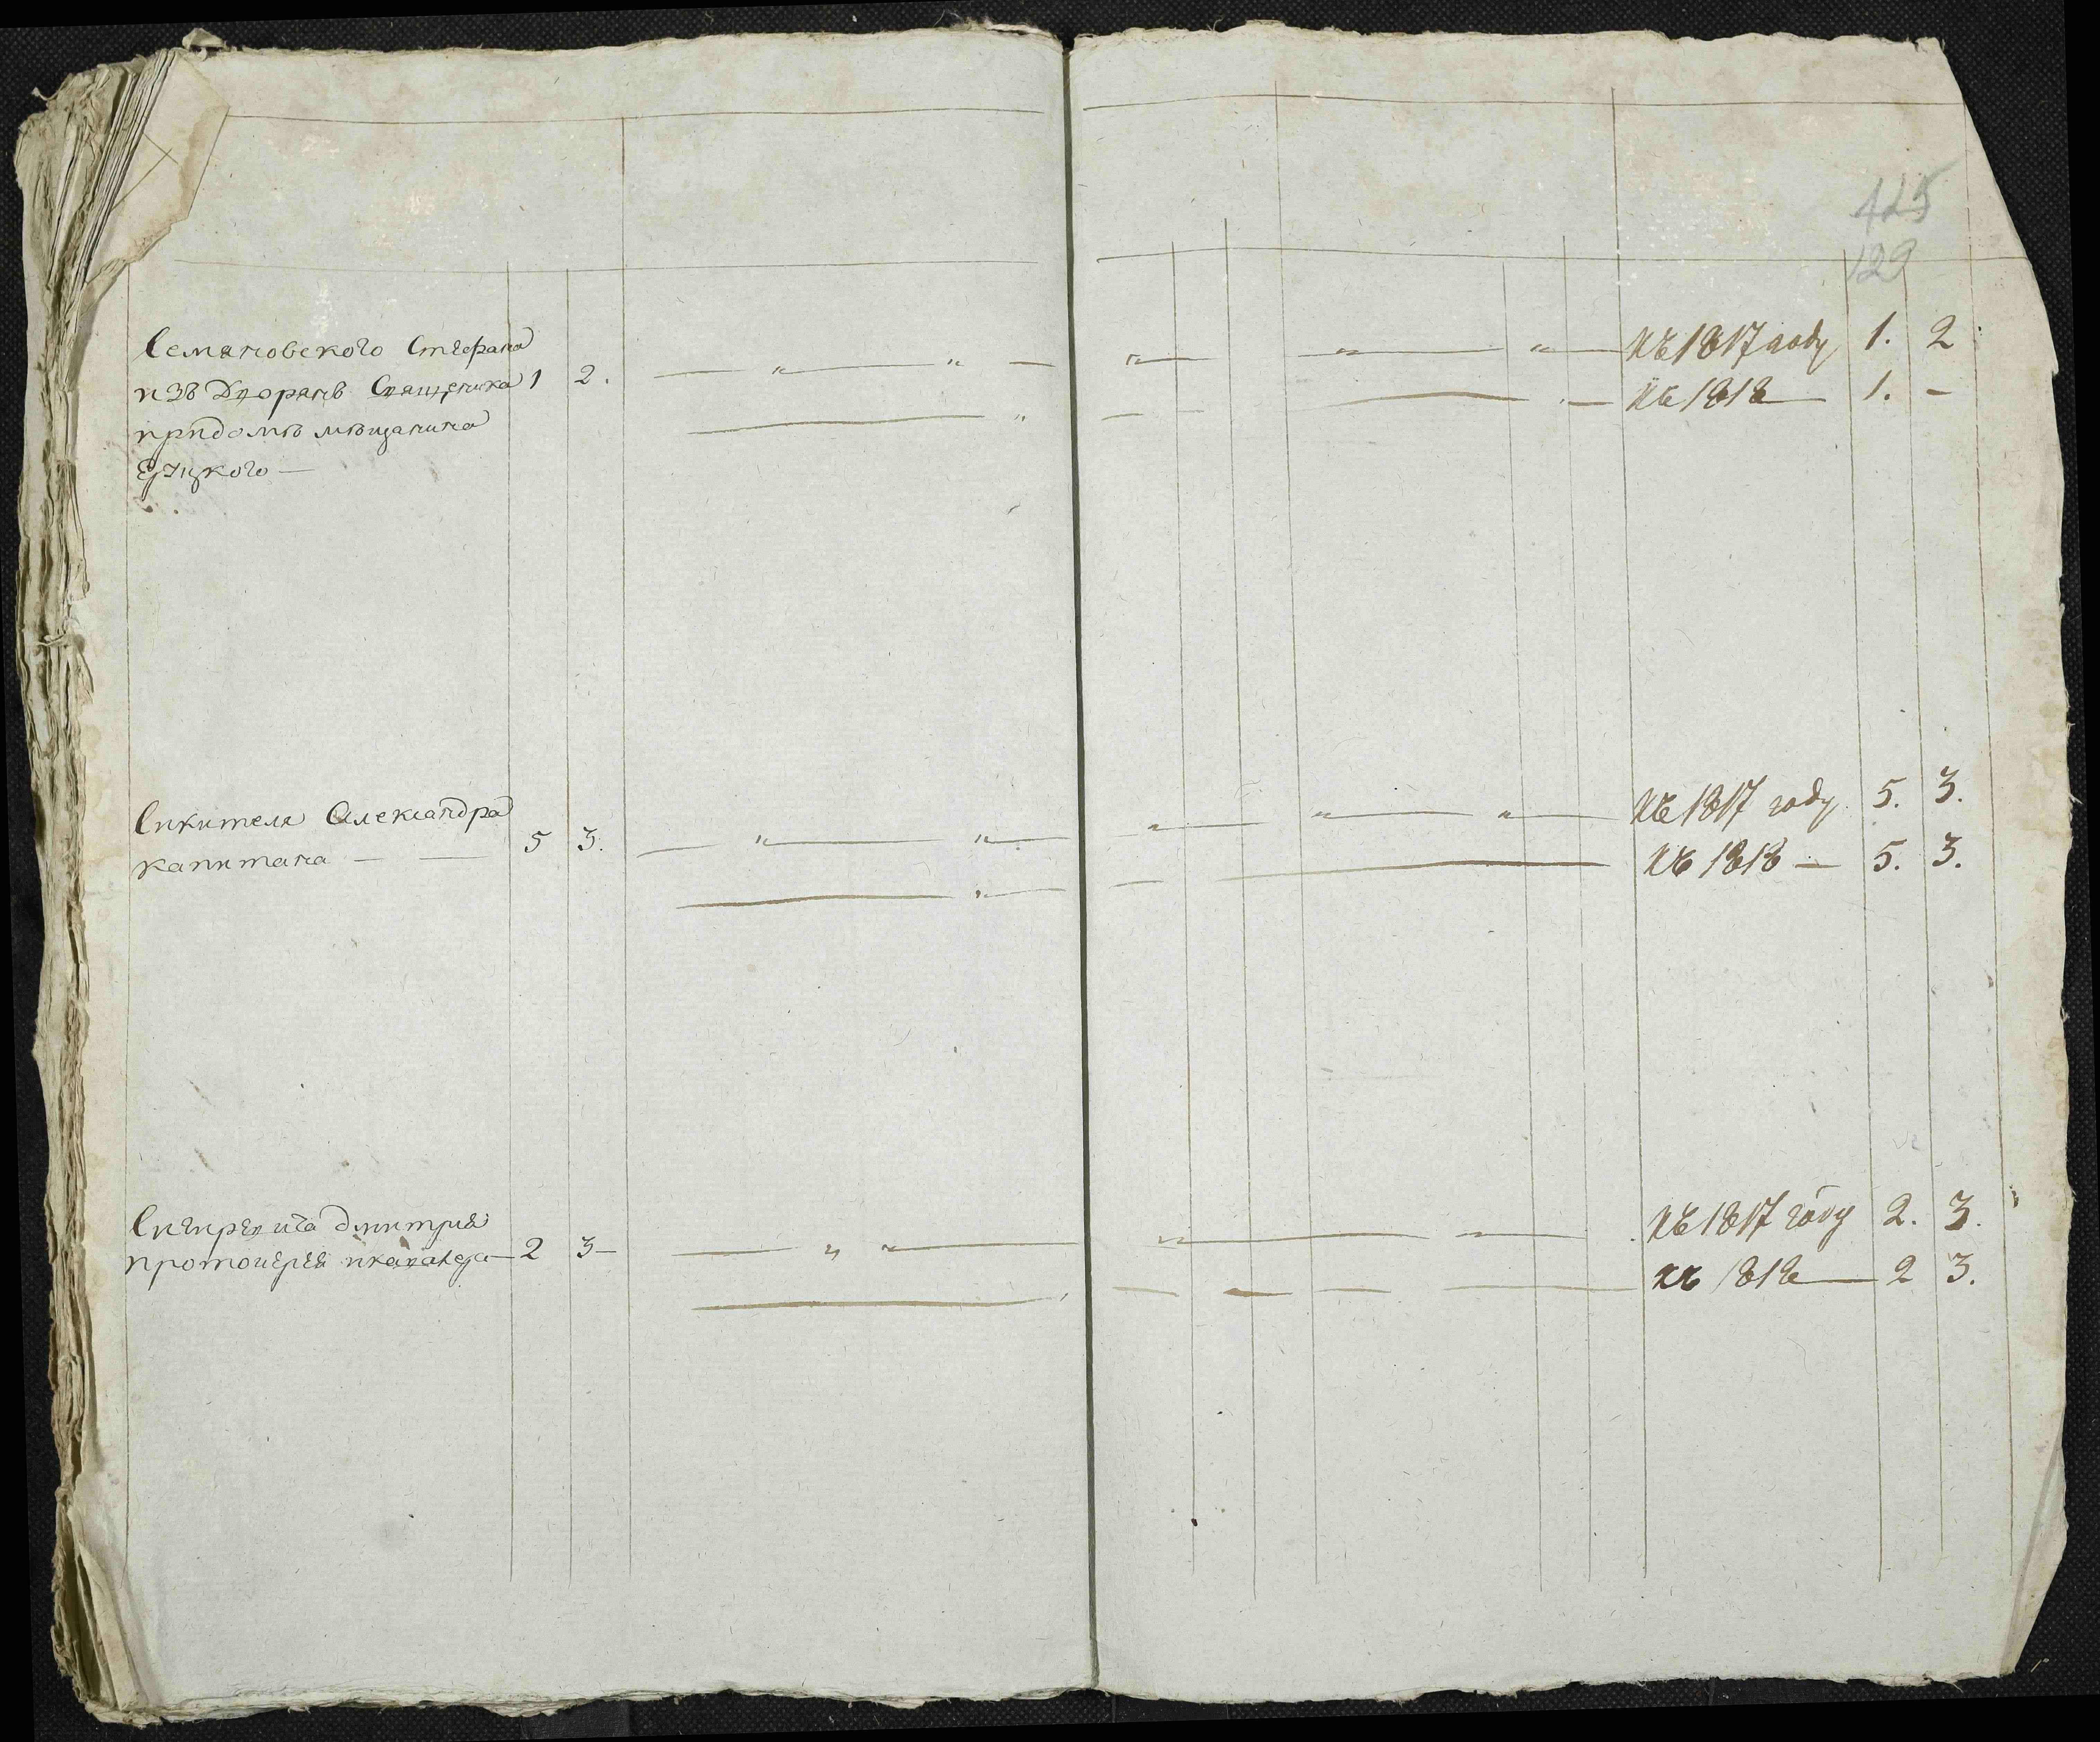 125
129
Семяновского Стефана
изъ Дворянъ Священика 1 2.
придомѣ мѣщанина
къ 1817 году 1. 2
къ 1818 — 1. —
Сикителя Александра
капитана — — 5 3.
къ 1817 году 5. 3.
къ 1818 — 5. 3.
Дмитрия
протоиерея 2 3 —
къ 1817 году 2. 3.
къ 1818 — 2 3.